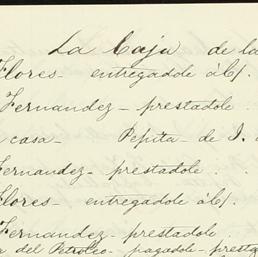 La Caja de la
Flores - entregadole á c/.
Fernandez - prestadole .
casa - Pepita - de I.
Fernandez - prestadole . .
Flores - entregadole á c/.
Fernandez - prestadole .
del Petroleo - pagadole - presta